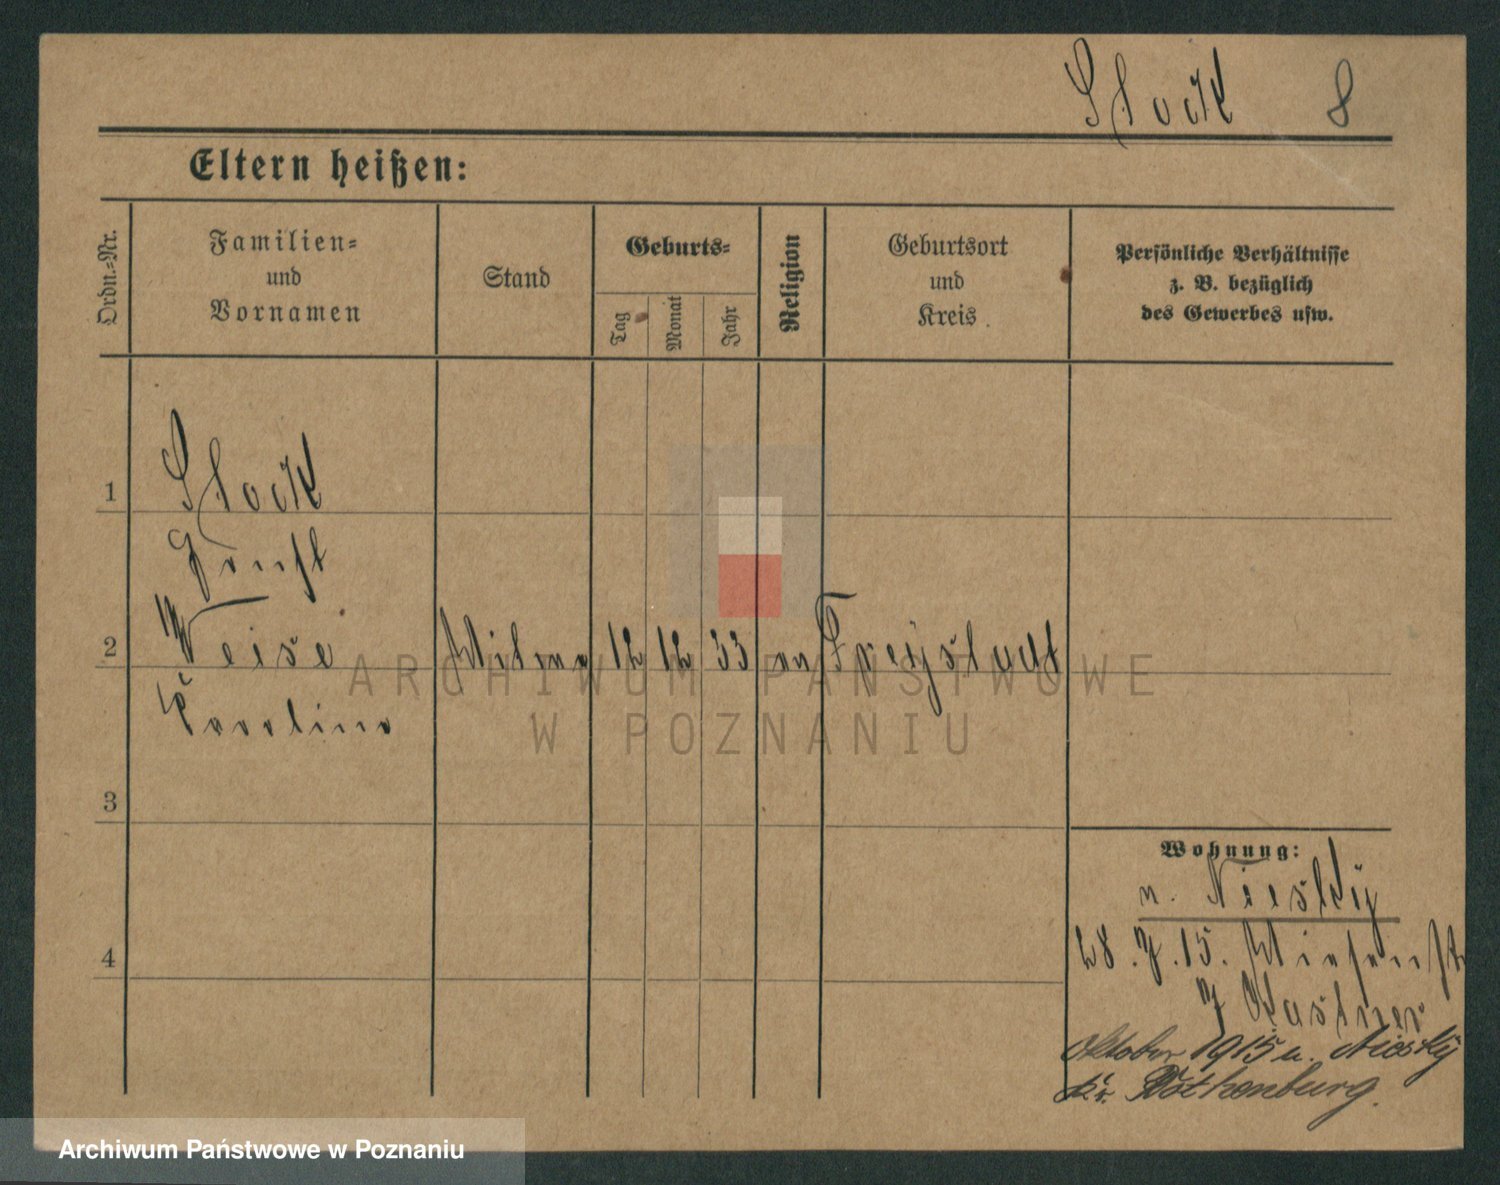 Stock 8
Eltern heißen:
Ordn.-Nr.
Familien-
und
Vornamen
Stand
Geburts-
Tag
Monat
Jahr
Religion
Geburtsort
und
Kreis
Persönliche Verhältnisse
z. B. bezüglich
des Gewerbes usw.
1
Stock
Ernst
2
Weise Witwe 12 12 33 ev Freystadt
Karoline
3
4
Wohnung:
n. Niesky
28. 7. 15. Wiesenstr
7 Kastner
Oktober 1915 n. Niesky
Kr. Rothenburg.
ARCHIWUM PAŃSTWOWE
W POZNANIU
Archiwum Państwowe w Poznaniu